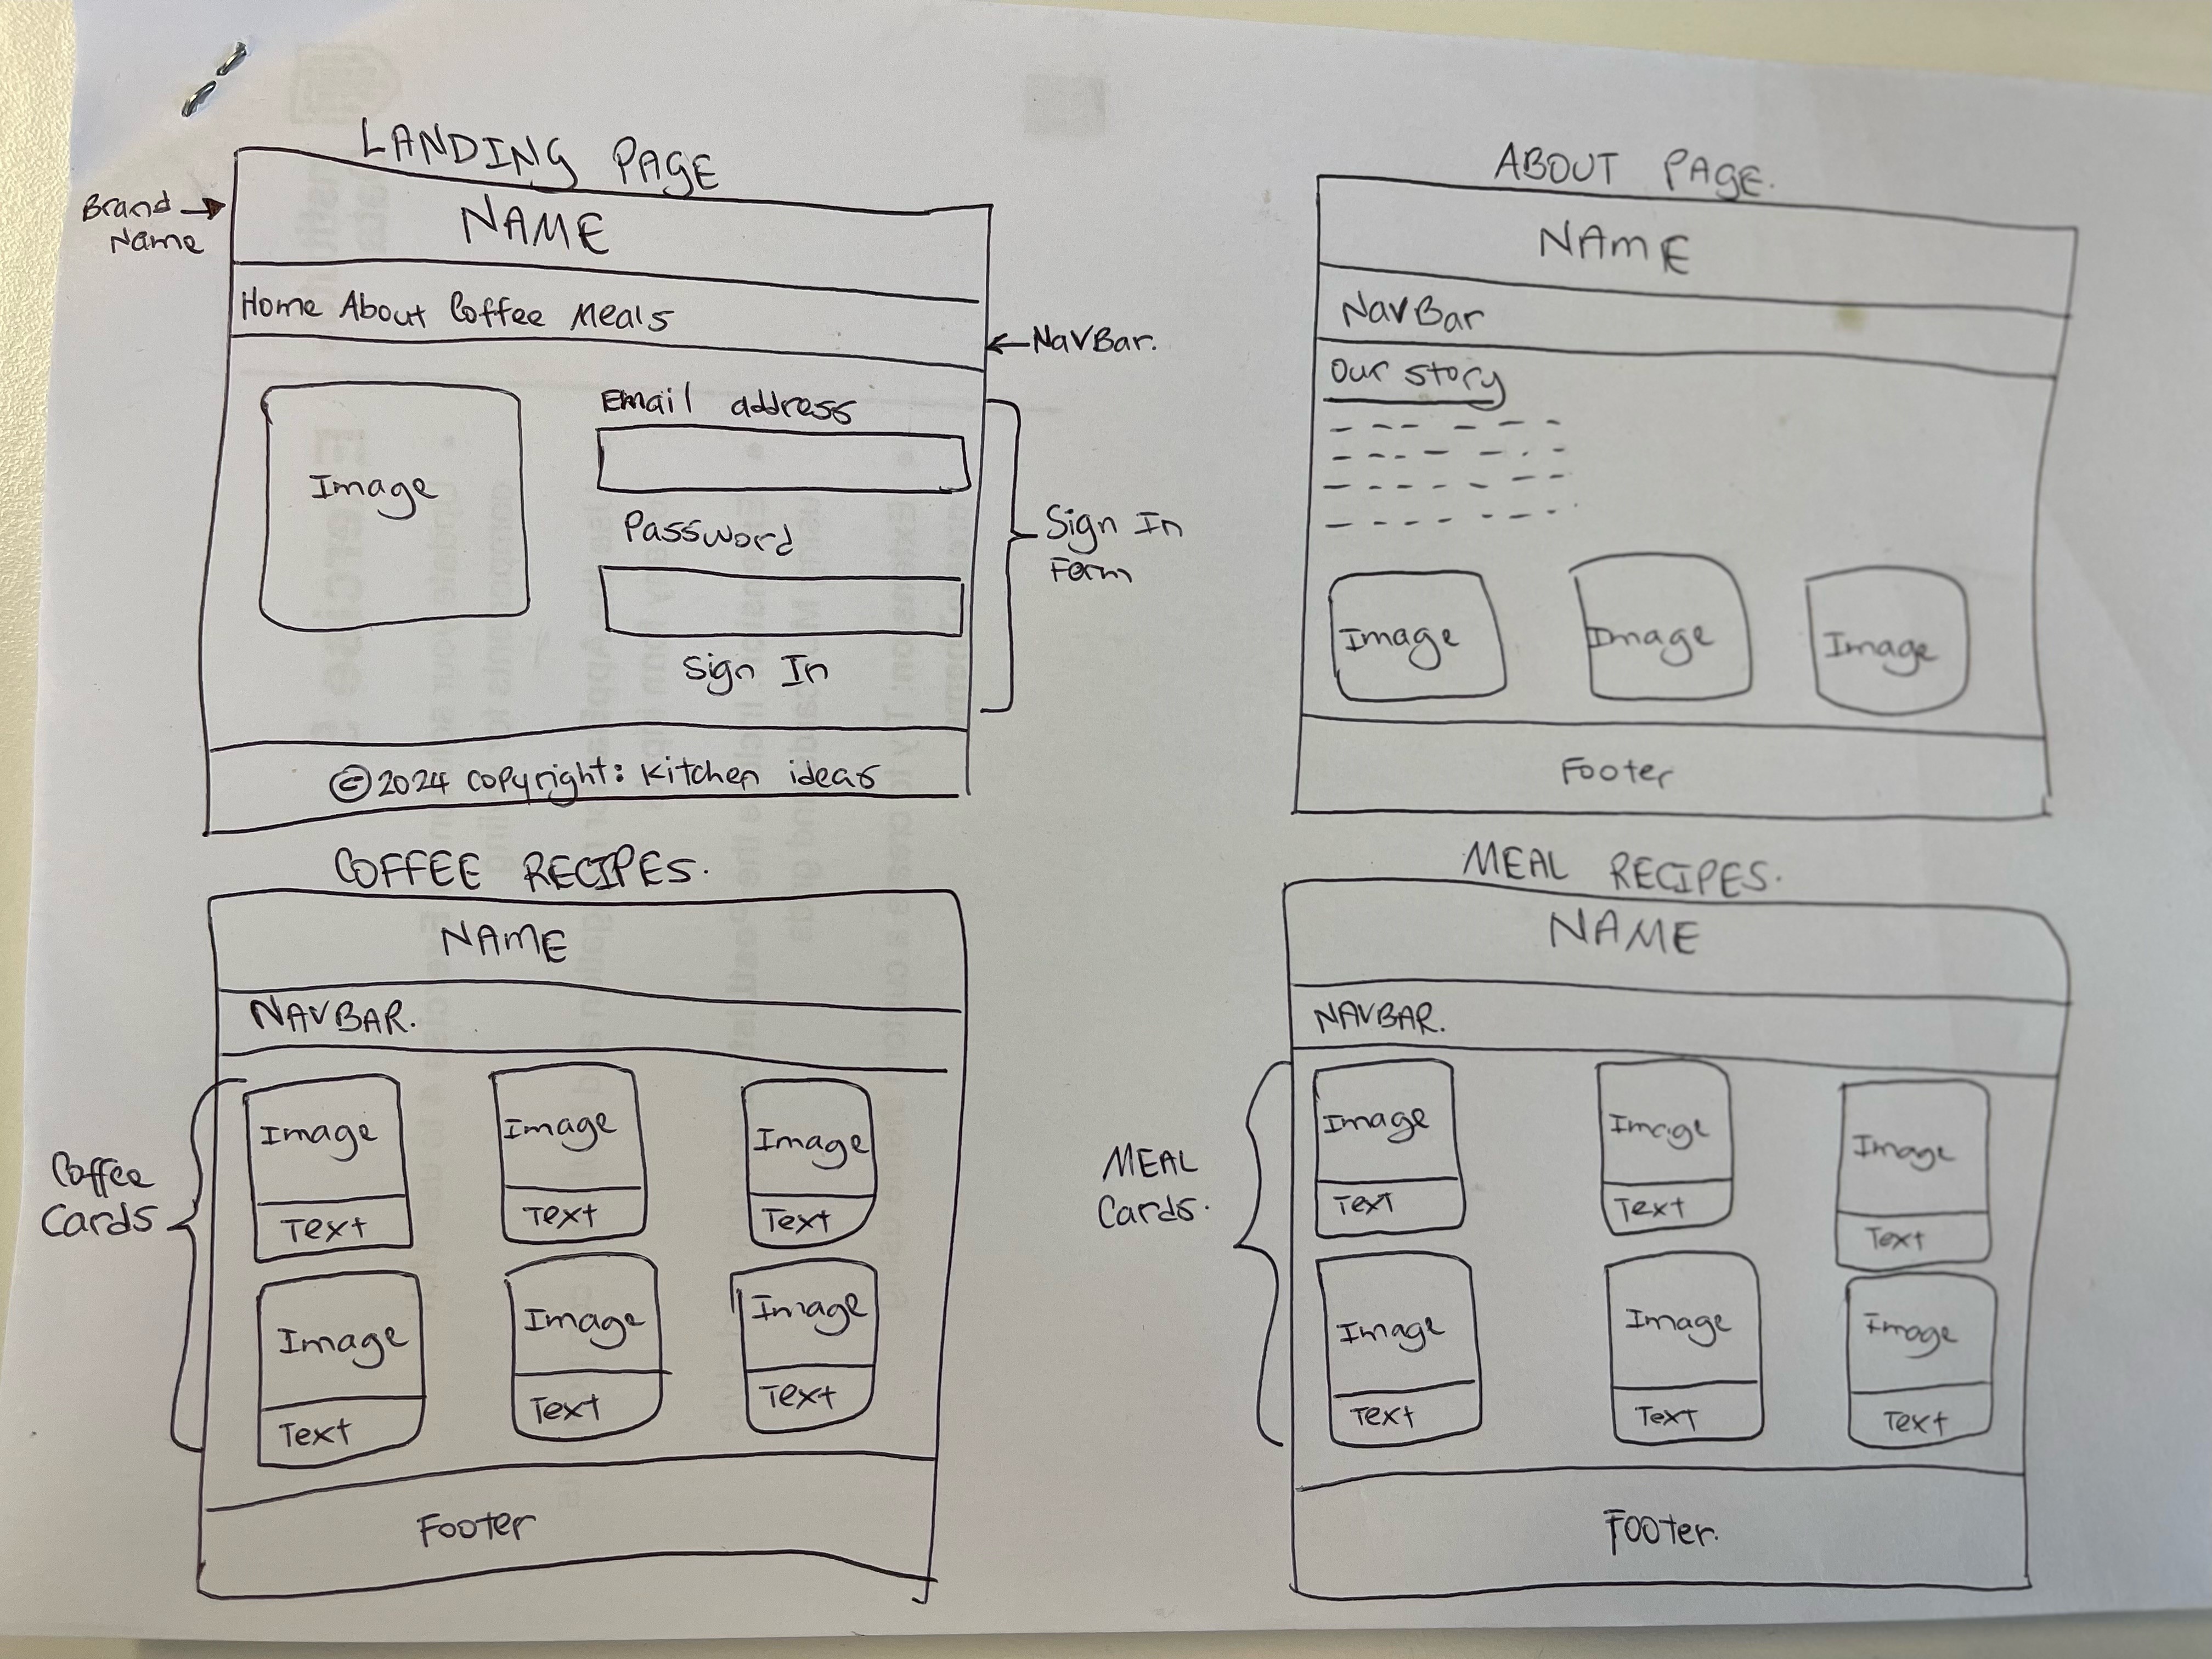 LANDING PAGE
Brand Name
NAME
Home About Coffee Meals
NavBar.
Image
Email address
Password
Sign In
Sign In
Form
©2024 copyright: Kitchen ideas
ABOUT PAGE.
NAME
NavBar
Our story
Image Image Image
Footer
COFFEE RECIPES.
NAME
NAVBAR.
Coffee
Cards
Image Image Image
Text Text Text
Image Image Image
Text Text Text
Footer
MEAL RECIPES.
NAME
NAVBAR.
MEAL
Cards.
Image Image Image
Text Text Text
Image Image Image
Text Text Text
Footer.